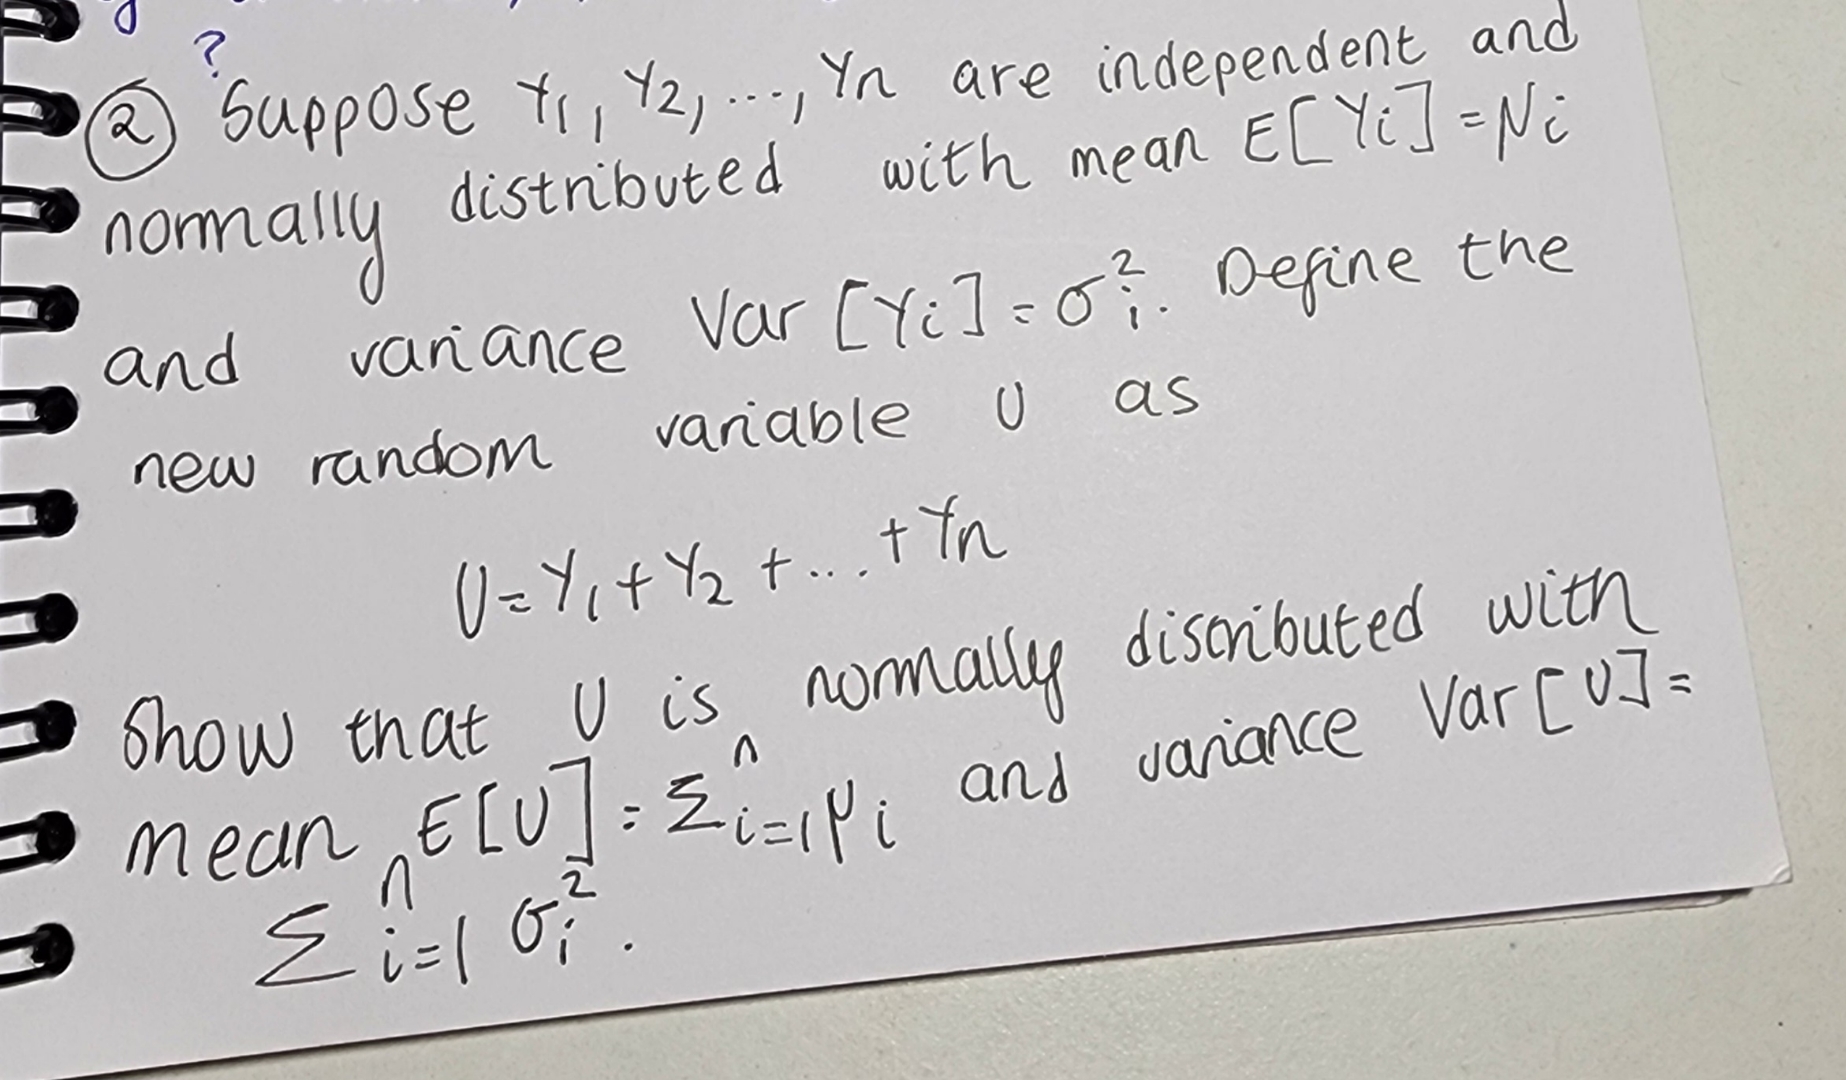 ?
② Suppose Y1, Y2, ..., Yn are independent and
normally distributed with mean E[Yi] = μi
and variance Var [Yi] = σ²i. Define the
new random variable U as
U = Y1 + Y2 + ... + Yn
Show that U is normally discributed with
mean E[U] = Σ i=1 n μi and variance Var [U] =
Σ i=1 n σi².